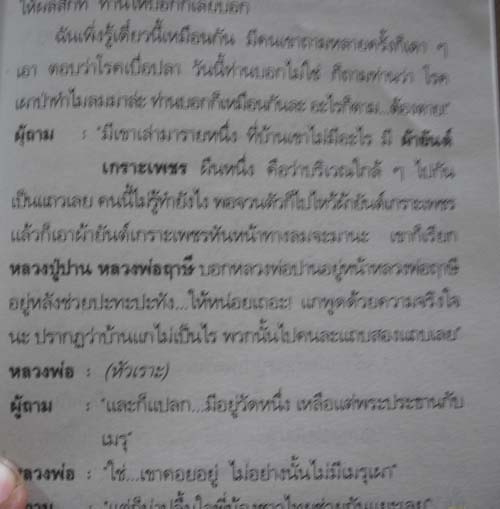 ให้ผลสักที ท่านให้บอกก็เลยบอก
ฉันเพิ่งรู้เดี๋ยวนี้เหมือนกัน มีคนเขาถามหลายครั้งก็เดา ๆ
เอา ตอบว่าโรคเบื่อปลา วันนี้ท่านบอกไม่ใช่ ก็ถามท่านว่า โรค
เผาป่าทำไมลมมาล่ะ ท่านบอกก็เหมือนกันละ อะไรก็ตาม...ต้องตาย"
ผู้ถาม : "มีเขาเล่ามารายหนึ่ง ที่บ้านเขาไม่มีอะไร มี ผ้ายันต์
เกราะเพชร ผืนหนึ่ง คือว่าบริเวณใกล้ ๆ ไปกัน
เป็นแถวเลย คนนี้ไม่รู้ทำยังไง พอจวนตัวก็ไปไหว้ผ้ายันต์เกราะเพชร
แล้วก็เอาผ้ายันต์เกราะเพชรหันหน้าทางลมจะมานะ เขาก็เรียก
หลวงปู่ปาน หลวงพ่อฤาษี บอกหลวงพ่อปานอยู่หน้าหลวงพ่อฤาษี
อยู่หลังช่วยปะทะปะทัง...ให้หน่อยเถอะ! แกพูดด้วยความจริงใจ
นะ ปรากฏว่าบ้านแกไม่เป็นไร พวกนั้นไปคนละแถบสองแถบเลย"
หลวงพ่อ : (หัวเราะ)
ผู้ถาม : "และก็แปลก...มีอยู่วัดหนึ่ง เหลือแต่พระประธานกับ
เมรุ"
หลวงพ่อ : "ใช่...เขาคอยอยู่ ไม่อย่างนั้นไม่มีเมรุเผา"